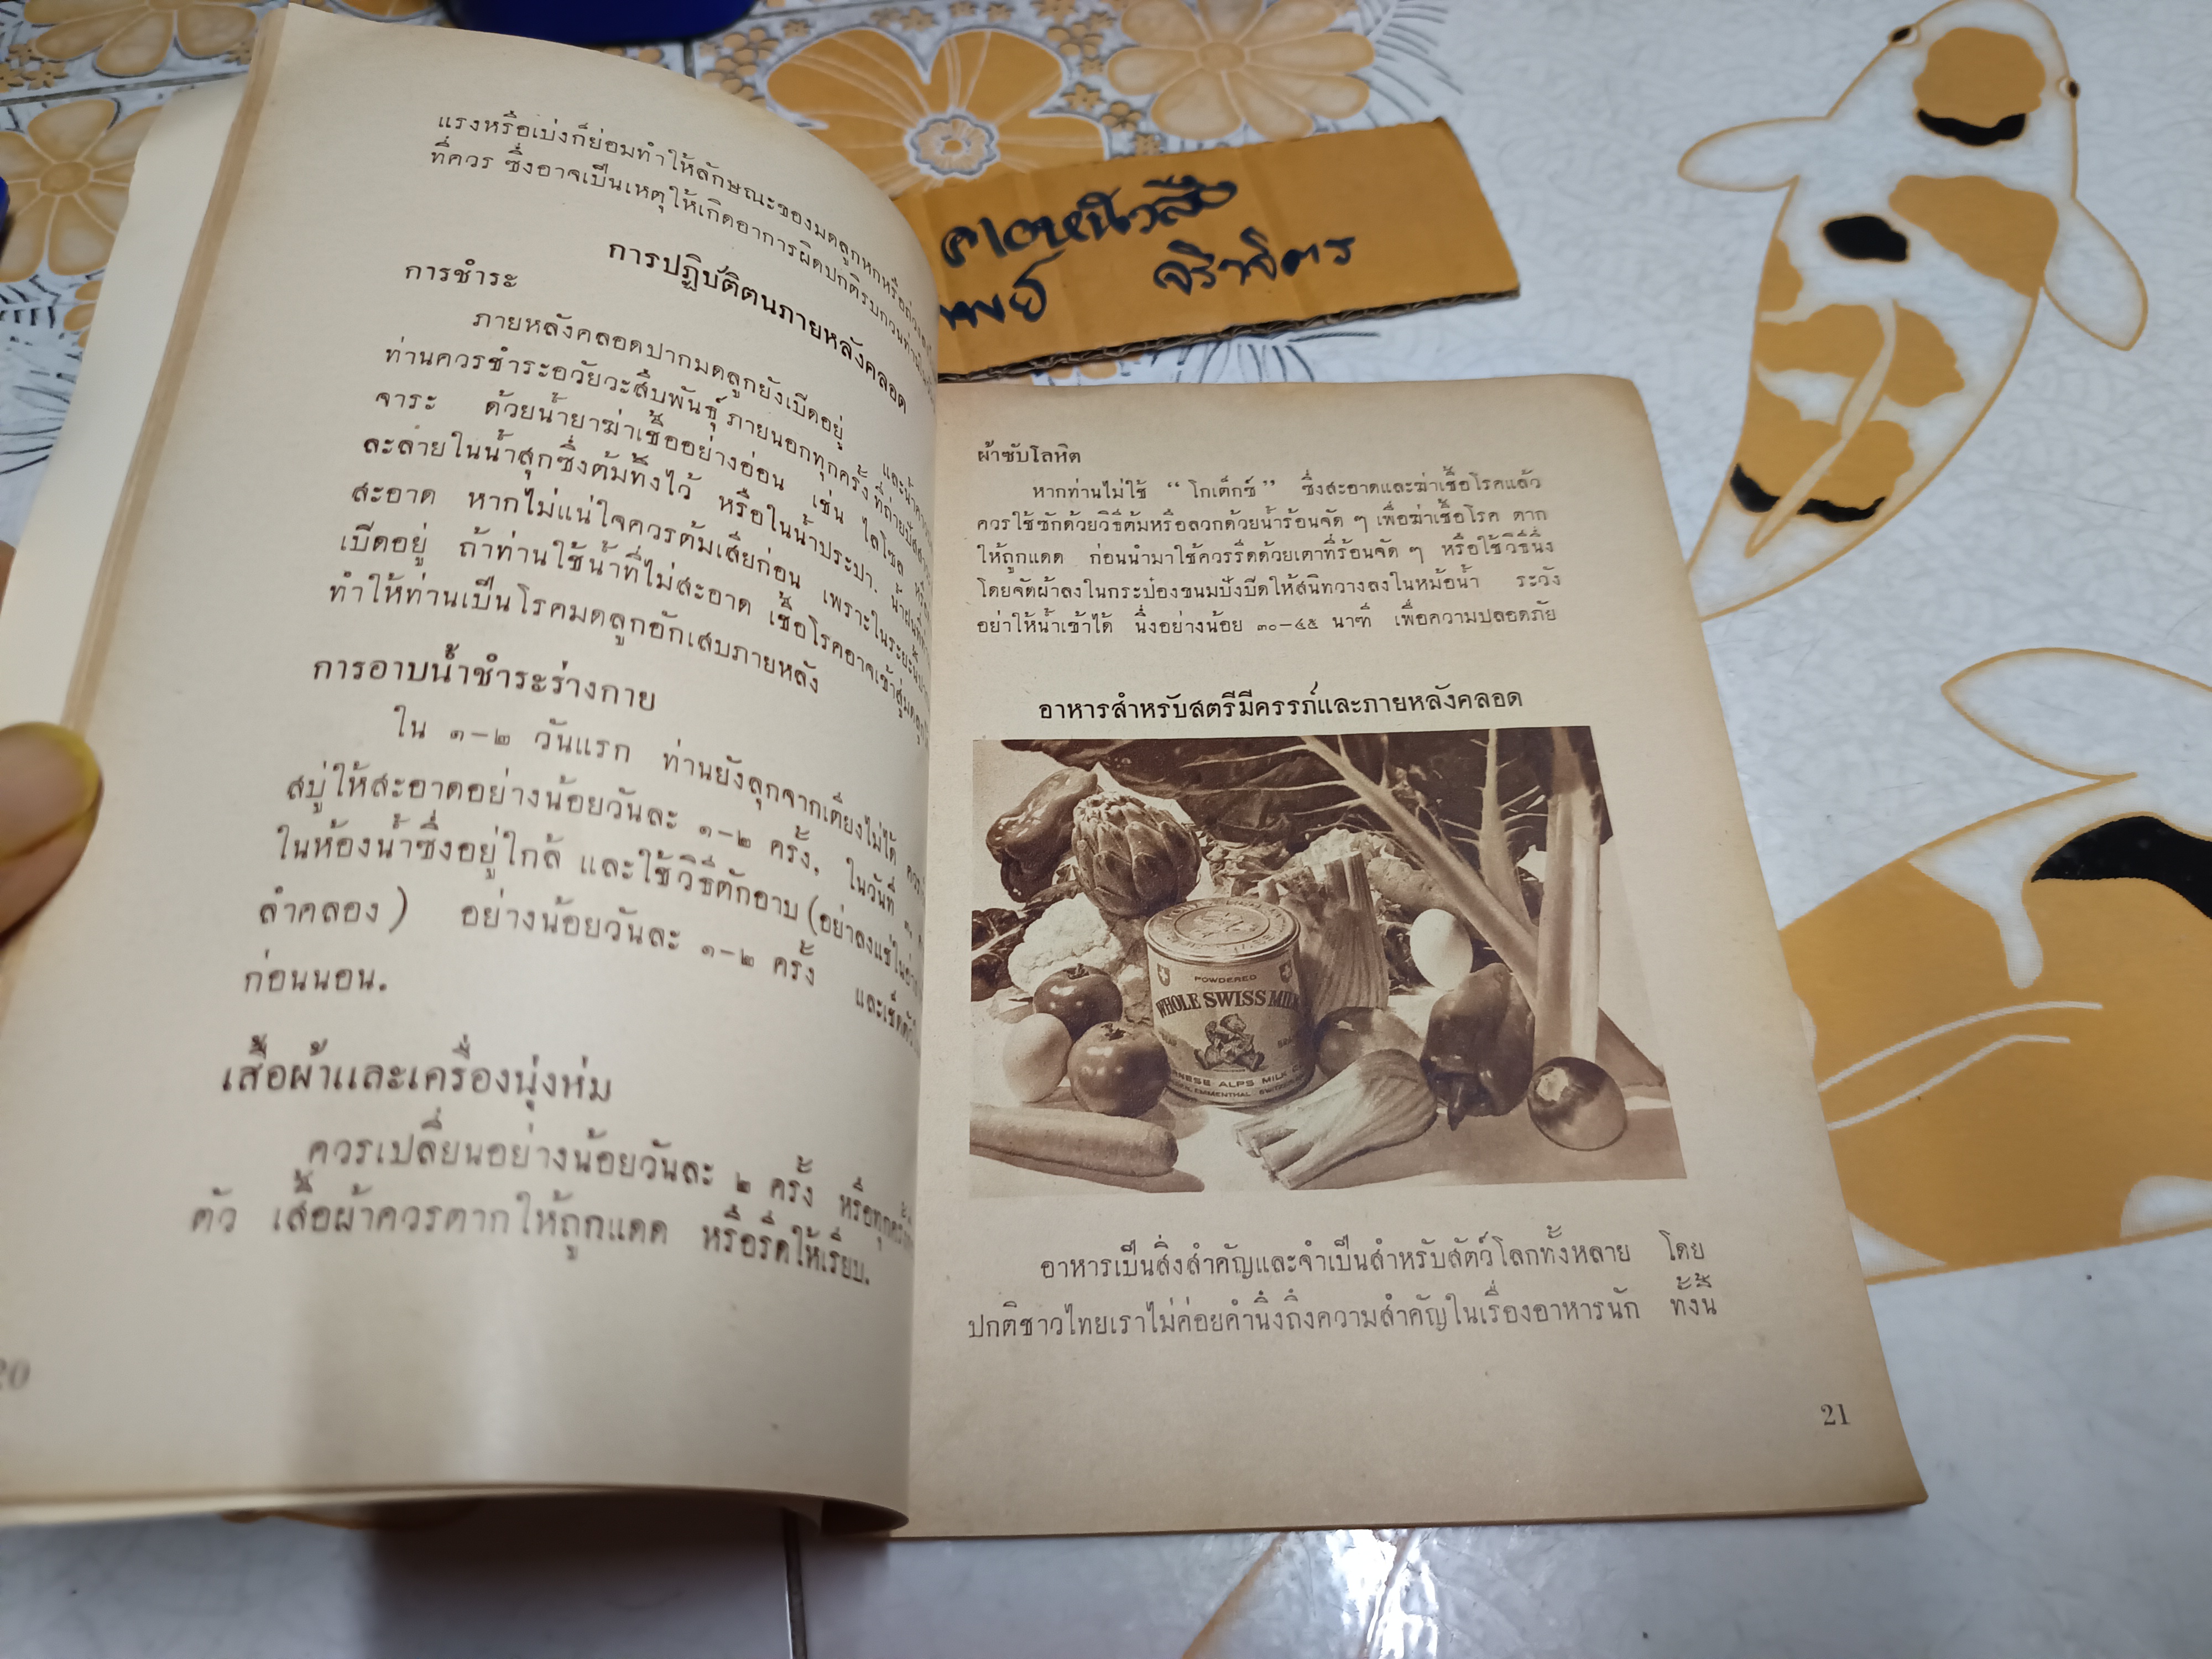 แรงหรือเบ่งก็ย่อมทำให้ลักษณะของมดลูกหกหรือ
ที่ควร ซึ่งอาจเป็นเหตุให้เกิดอาการผิดปกติรบกวนท่าน
การปฏิบัติตนภายหลังคลอด
การชำระ
ภายหลังคลอดปากมดลูกยังเปิดอยู่ และน้ำคาวปลา
ท่านควรชำระอวัยวะสืบพันธุ์ภายนอกทุกครั้งที่ถ่ายปัสสาวะ
จาระ ด้วยน้ำยาฆ่าเชื้ออย่างอ่อน เช่น ไลโซล
ละลายในน้ำสุกซึ่งต้มทิ้งไว้ หรือในน้ำประปา. น้ำฝนที่
สะอาด หากไม่แน่ใจควรต้มเสียก่อน เพราะในระยะนี้
เปิดอยู่ ถ้าท่านใช้น้ำที่ไม่สะอาด เชื้อโรคอาจเข้าสู่มดลูก
ทำให้ท่านเป็นโรคมดลูกอักเสบภายหลัง
การอาบน้ำชำระร่างกาย
ใน ๑–๒ วันแรก ท่านยังลุกจากเตียงไม่ได้
สบู่ให้สะอาดอย่างน้อยวันละ ๑–๒ ครั้ง, ในวันที่ ๓,
ในห้องน้ำซึ่งอยู่ใกล้ และใช้วิธีตักอาบ (อย่าลงแช่ใน
ลำคลอง) อย่างน้อยวันละ ๑–๒ ครั้ง และเช็ด
ก่อนนอน.
เสื้อผ้าและเครื่องนุ่งห่ม
ควรเปลี่ยนอย่างน้อยวันละ ๒ ครั้ง หรือทุกครั้ง
ตัว เสื้อผ้าควรตากให้ถูกแดด หรือรีดให้เรียบ.
20
ผ้าซับโลหิต
หากท่านไม่ใช้ “ โกเต็กซ์ ” ซึ่งสะอาดและฆ่าเชื้อโรคแล้ว
ควรใช้ซักด้วยวิธีต้มหรือลวกด้วยน้ำร้อนจัด ๆ เพื่อฆ่าเชื้อโรค ตาก
ให้ถูกแดด ก่อนนำมาใช้ควรรีดด้วยเตาที่ร้อนจัด ๆ หรือใช้วิธีนึ่ง
โดยจัดผ้าลงในกระป๋องขนมปังปิดให้สนิทวางลงในหม้อน้ำ ระวัง
อย่าให้น้ำเข้าได้ นึ่งอย่างน้อย ๓๐–๔๕ นาที เพื่อความปลอดภัย
อาหารสำหรับสตรีมีครรภ์และภายหลังคลอด
POWDERED
WHOLE SWISS MILK
ALPS MILK
EMMENTHAL
อาหารเป็นสิ่งสำคัญและจำเป็นสำหรับสัตว์โลกทั้งหลาย โดย
ปกติชาวไทยเราไม่ค่อยคำนึงถึงความสำคัญในเรื่องอาหารนัก ทั้งนี้
21